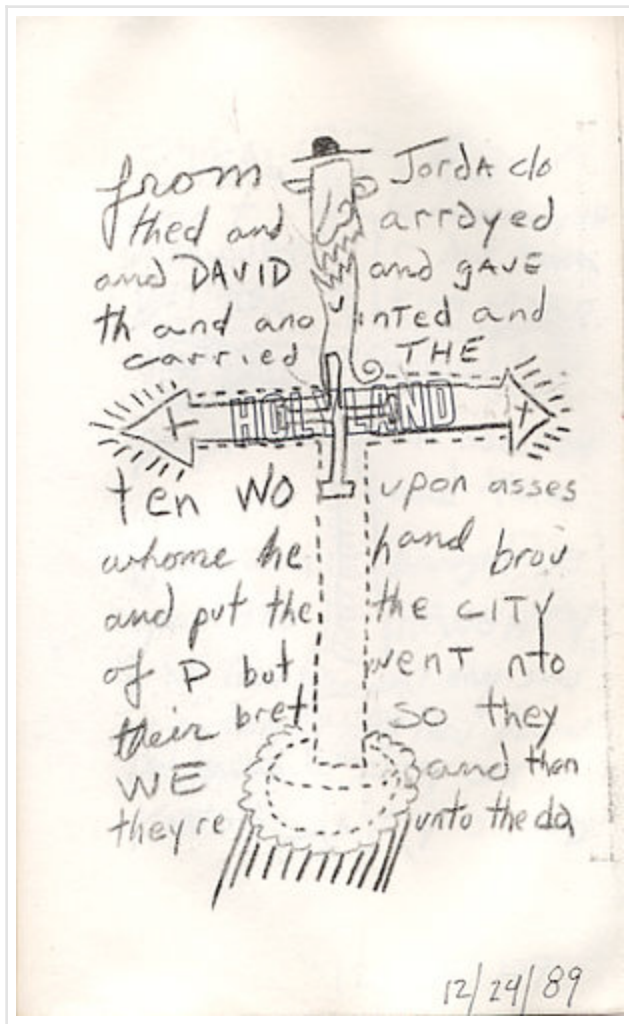 from Jorda clo
thed and arrayed
and DAVID and gAVE
th and ano inTed and
carried THE
HOLY LAND
ten WO upon asses
whome he hand brou
and put the the CITY
of P but wenT nto
their bret so they
WE and than
they re unto the da
12/24/89